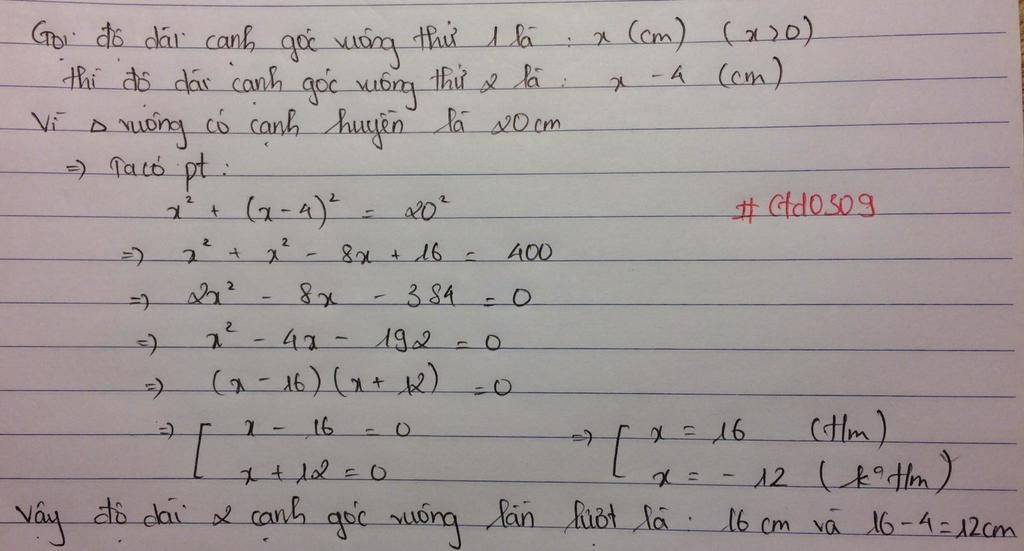 Gọi độ dài cạnh góc vuông thứ 1 là : x (cm) (x>0)
thì độ dài cạnh góc vuông thứ 2 là : x - 4 (cm)
Vì Δ vuông có cạnh huyền là 20cm
=> Ta có pt :
x² + (x-4)² = 20²
#Ctd0509
=> x² + x² - 8x + 16 = 400
=> 2x² - 8x - 384 = 0
=> x² - 4x - 192 = 0
=> (x - 16)(x + 12) = 0
=> [ x - 16 = 0 => [ x = 16 (tlm)
x + 12 = 0 x = - 12 (k° tlm)
Vậy độ dài 2 cạnh góc vuông lần lượt là : 16 cm và 16-4=12cm